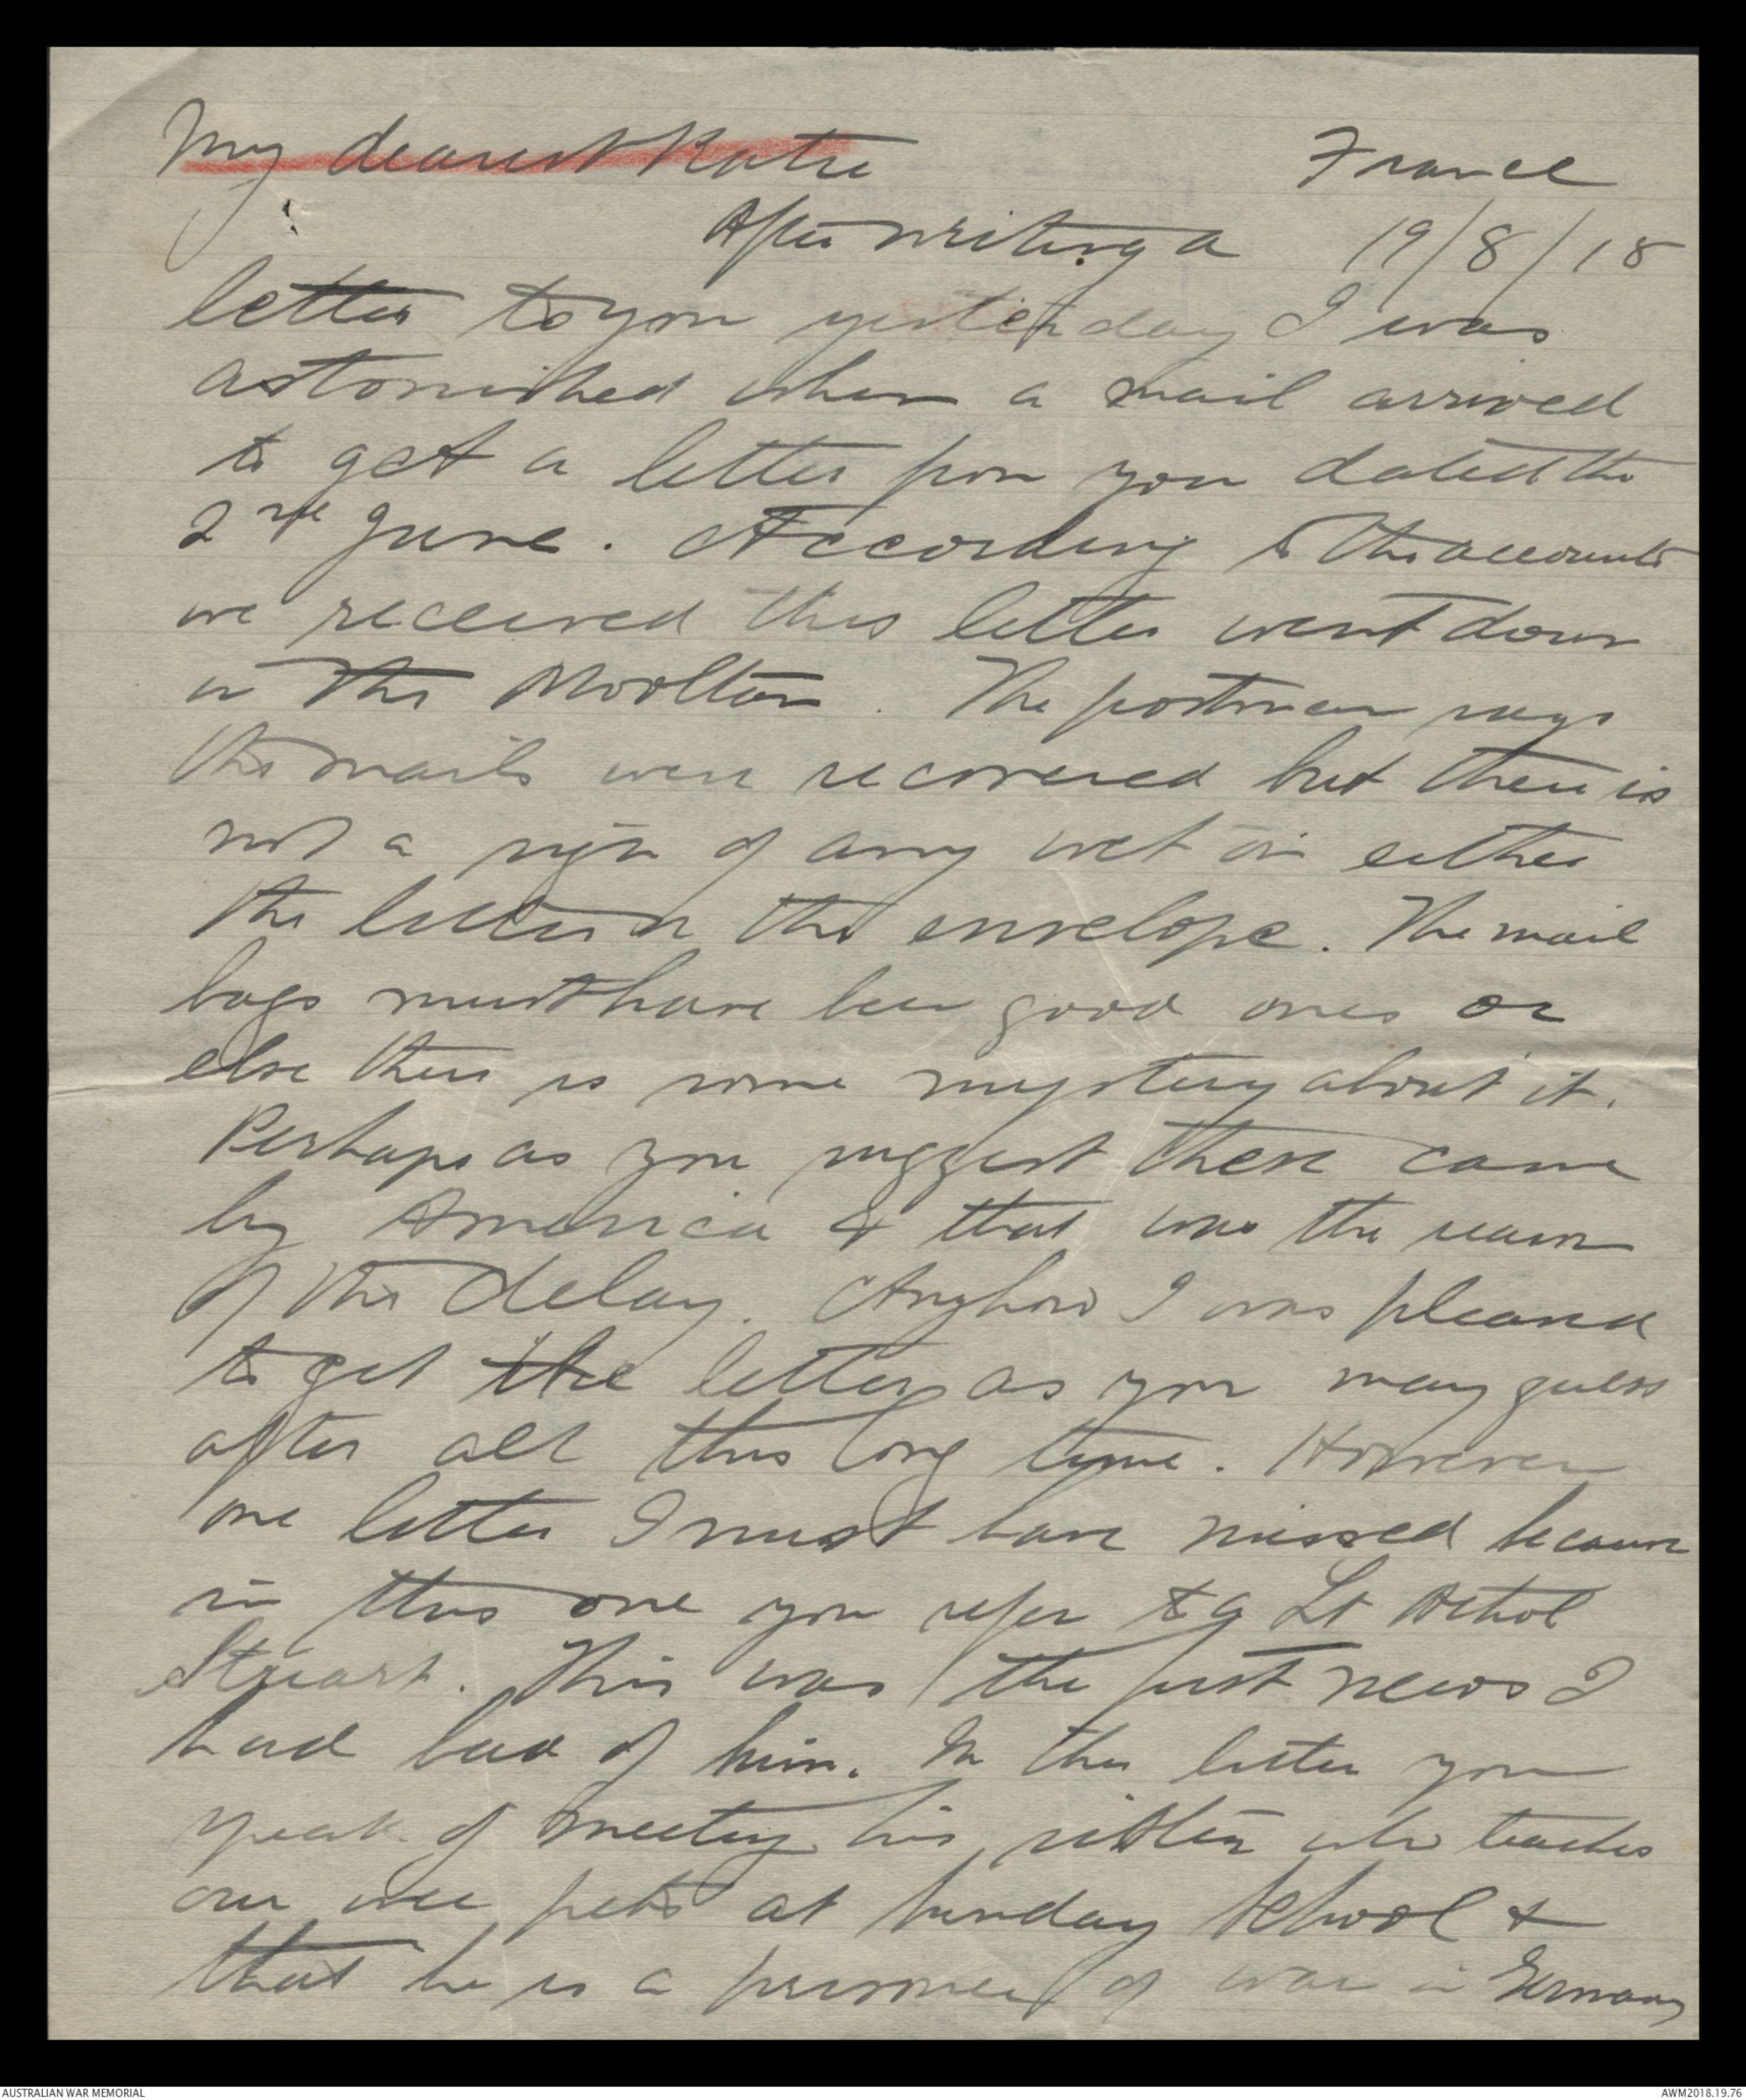 My dearest Katie France
After writing a 19/8/18
letter to you yesterday I was
astonished when a mail arrived
to get a letter from you dated the
2nd June. According to the accounts
we received this letter went down
in the Mooltan. The postman says
the mails were recovered but there is
not a sign of any wet on either
the letter or the envelope. The mail
bags must have been good ones or
else there is some mystery about it.
Perhaps as you suggest these came
by America & that was the reason
of the delay. Anyhow I was pleased
to get the letter as you may guess
after all this long time. However
one letter I must have missed because
in this one you refer to Lt
Stuart. This was the first news I
had had of him. In this letter you
speak of meeting his sister who teaches
our wee pets at Sunday School &
that he is a prisoner of war in Germany
AUSTRALIAN WAR MEMORIAL AWM2018.19.76